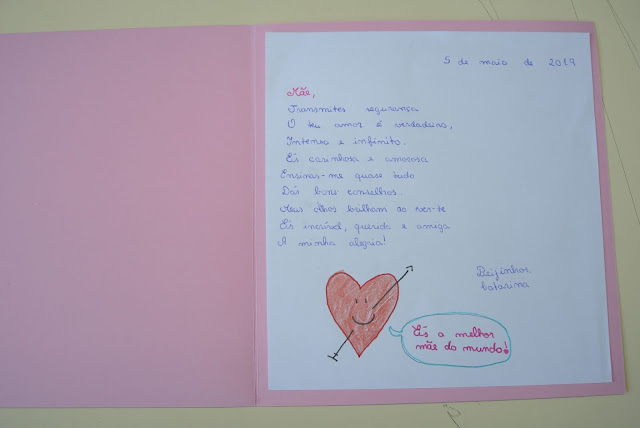 5 de maio de 2019
Mãe,
Transmites segurança
O teu amor é verdadeiro,
Intenso e infinito.
És carinhosa e amorosa
Ensinas-me quase tudo
Dás bons conselhos.
Meus olhos brilham ao ver-te
És incrível, querida e amiga
A minha alegria!
Beijinhos
Catarina
És a melhor
mãe do mundo!